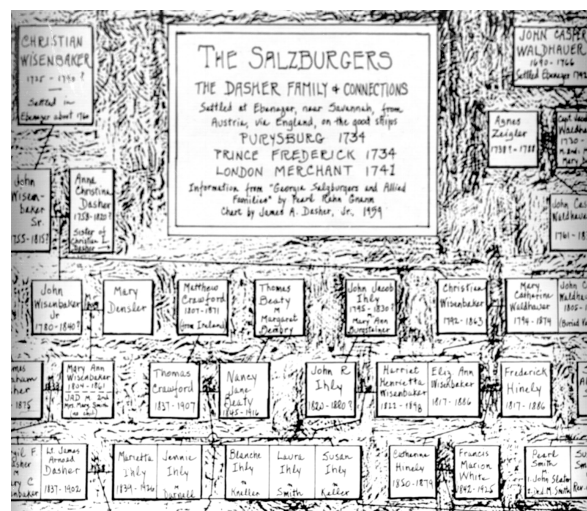 CHRISTIAN
WISENBAKER
Settled in
Ebenezer about 1760
THE SALZBURGERS
THE DASHER FAMILY & CONNECTIONS
Settled at Ebenezer, near Savannah, from
Austria, via England, on the good ships
PURYSBURG 1734
PRINCE FREDERICK 1734
LONDON MERCHANT 1741
Information from "Georgia Salzburgers and Allied
Families" by Pearl Rahn Gnann
Chart by James A. Dasher, Jr., 1959
JOHN CASPER
WALDHAUER
1690 - 1766
Settled Ebenezer
Agnes
Zeigler
John
Wisen-
baker
Sr.
Anna
Christina
Dasher
Sister of
Christian
Dasher
John Cas
Waldhau
John
Wisenbaker
Jr
1780 - 1840?
Mary
Densler
Matthew
Crawford
1807 - 1871
from Ireland
Thomas
Beaty
m
Margaret
John Jacob
Ihly
Mary Ann
Burgsteiner
Christian
Wisenbaker
1792 - 1863
Mary
Catharine
Waldhauer
1794 - 1874
John C
Waldhau
Mary Ann
Wisenbaker
Thomas
Crawford
1837 - 1907
Nancy
Jane
Beaty
John R
Ihly
1820 - 1880?
Harriet
Henrietta
Wisenbaker
Eliz Ann
Wisenbaker
1817 - 1886
Frederick
Hinely
1817 - 1886
Lt James
Dasher
1837 - 1902
Marietta
Ihly
1839 - 1926
Jennie
Ihly
m
Blanche
Ihly
m
Kneller
Laura
Ihly
m
Smith
Susan
Ihly
m
Keller
Catherine
Hinely
1850 - 1879
Francis
Marion
White
Pearl
Smith
m